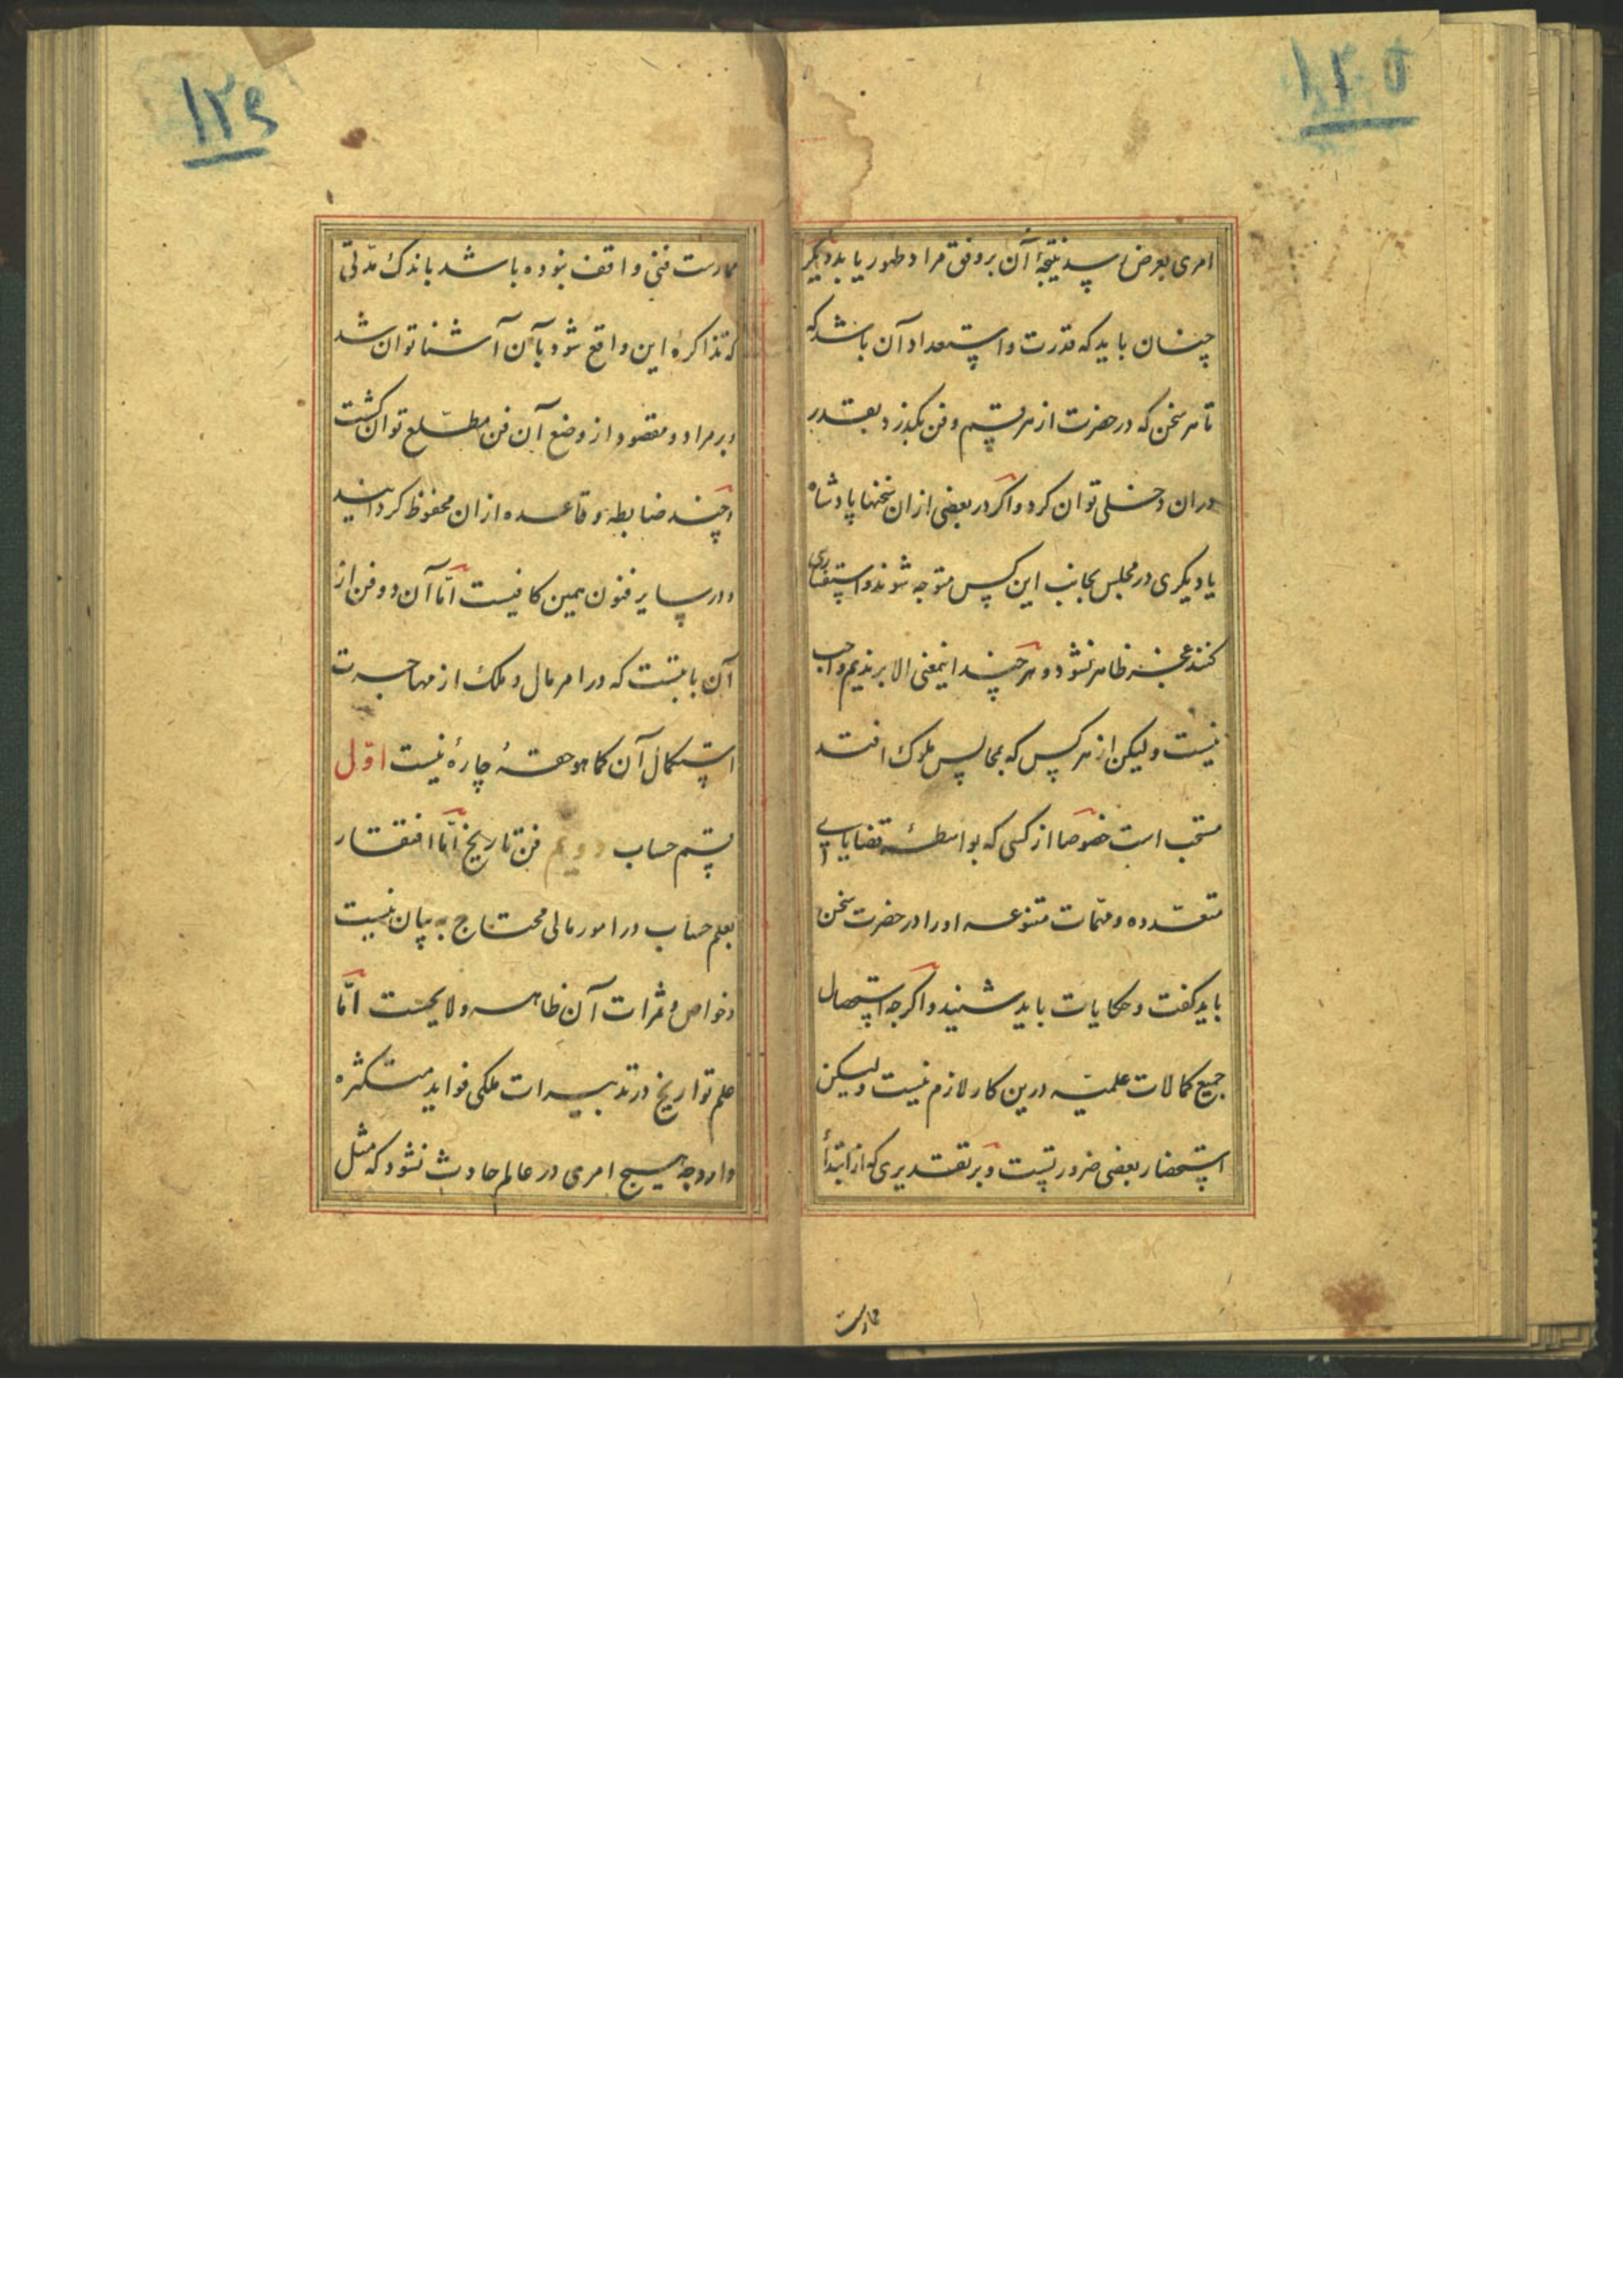 ۱۲۵
امری بعرض رسد نتیجهٔ آن بر وفق مراد ظهور یابد دیگر
چنان باید که قدرت و استعداد آن باشد که
تا هر سخن که در حضرت از هر قسم و فن بگذرد بقدر
دران دخلی توان کرد و اگر در بعضی ازان سخنها پادشاه
یا دیگری در مجلس بجانب این کس متوجه شوند و استفساری
کنند عجز ظاهر نشود و هر چند اینمعنی الا بر ندیم واجب
نیست ولیکن از هر کس که بمجالس ملوک افتد
مستحب است خصوصا از کسی که بواسطهٔ قضایای
متعدده و مهمات متنوعه او را در حضرت سخن
باید کفت و حکایات باید شنید و اگرچه استحصال
جمیع کمالات علمیّه درین کار لازم نیست ولیکن
استحضار بعضی ضروریست و بر تقدیری که از ابتدأ
ممارست
۱۲۶
ممارست فنی واقف نبوده باشد باندک مدّتی
که تذاکرهٔ این واقع شود بآن آشنا توان شد
و بر مراد و مقصود از وضع آن فن مطّلع توان کشت
و چند ضابطه و قاعده ازان محفوظ کردانید
و در سایر فنون همین کافیست امّا آن دو فن از
آن بابتست که در امر مال و ملک از مهاجرت
استکمال آن کما هو حقهٔ چارهٔ نیست اوّل
قسم حساب دویم فن تاریخ امّا افتقار
بعلم حساب در امور مالی محتاج به بیان نیست
و خواص و ثمرات آن ظاهر و لایحست امّا
علم تواریخ در تدبیرات ملکی فواید متکثره
دارد و چه هیچ امری در عالم حادث نشود که مثل